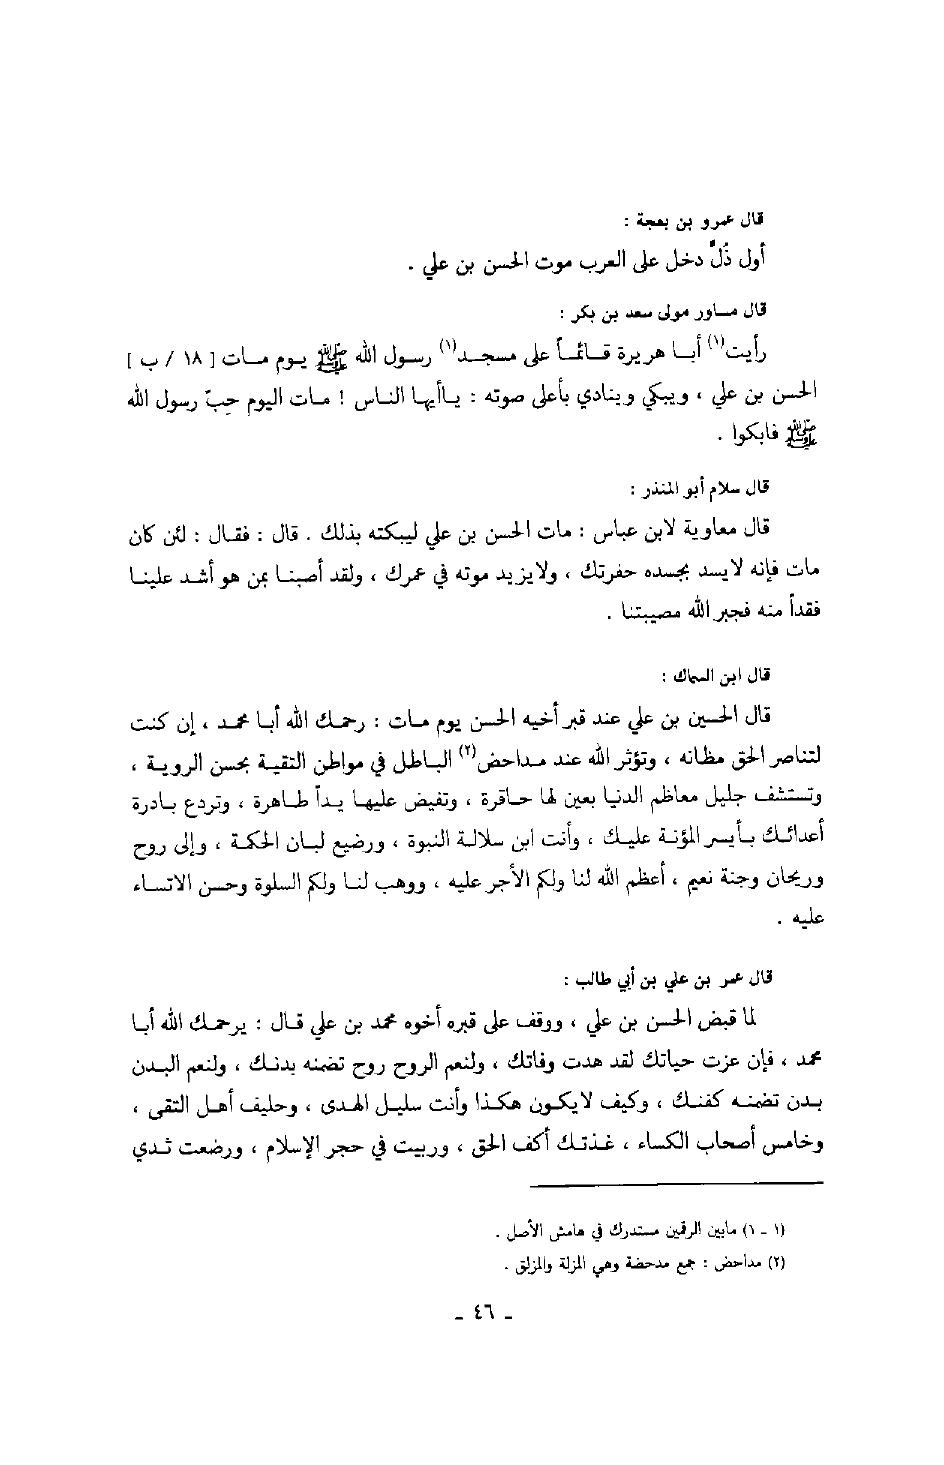 قال عمرو بن بعجة :
أول ذُلٍّ دخل على العرب موت الحسن بن علي .
قال مساور مولى سعد بن بكر :
رأيت(١) أبا هريرة قائماً على مسجد(١) رسول الله ﷺ يوم مات [ ١٨ / ب ]
الحسن بن علي ، ويبكي وينادي بأعلى صوته : ياأيها الناس ! مات اليوم حِبّ رسول الله
ﷺ فابكوا .
قال سلام أبو المنذر :
قال معاوية لابن عباس : مات الحسن بن علي ليبكته بذلك . قال : فقال : لئن كان
مات فإنه لايسد بجسده حفرتك ، ولايزيد موته في عمرك ، ولقد أصبنا بمن هو أشد علينا
فقداً منه فجبر الله مصيبتنا .
قال ابن السماك :
قال الحسين بن علي عند قبر أخيه الحسن يوم مات : رحمك الله أبا محمد ، إن كنت
لتناصر الحق مظانه ، وتؤثر الله عند مداحض(٢) الباطل في مواطن التقية بحسن الروية ،
وتستشف جليل معاظم الدنيا بعين لها حاقرة ، وتفيض عليها يداً طاهرة ، وتردع بادرة
أعدائك بأيسر المؤنة عليك ، وأنت ابن سلالة النبوة ، ورضيع لبان الحكمة ، وإلى روح
وريحان وجنة نعيم ، أعظم الله لنا ولكم الأجر عليه ، ووهب لنا ولكم السلوة وحسن الاتساء
عليه .
قال عمر بن علي بن أبي طالب :
لما قبض الحسن بن علي ، ووقف على قبره أخوه محمد بن علي قال : يرحمك الله أبا
محمد ، فإن عزت حياتك لقد هدت وفاتك ، ولنعم الروح روح تضمنه بدنك ، ولنعم البدن
بدن تضمنه كفنك ، وكيف لايكون هكذا وأنت سليل الهدى ، وحليف أهل التقى ،
وخامس أصحاب الكساء ، غذتك أكف الحق ، وربيت في حجر الإسلام ، ورضعت ثدي
(١ - ١) مابين الرقمين مستدرك في هامش الأصل .
(٢) مداحض : جمع مدحضة وهي المزلة والمزلق .
- ٤٦ -